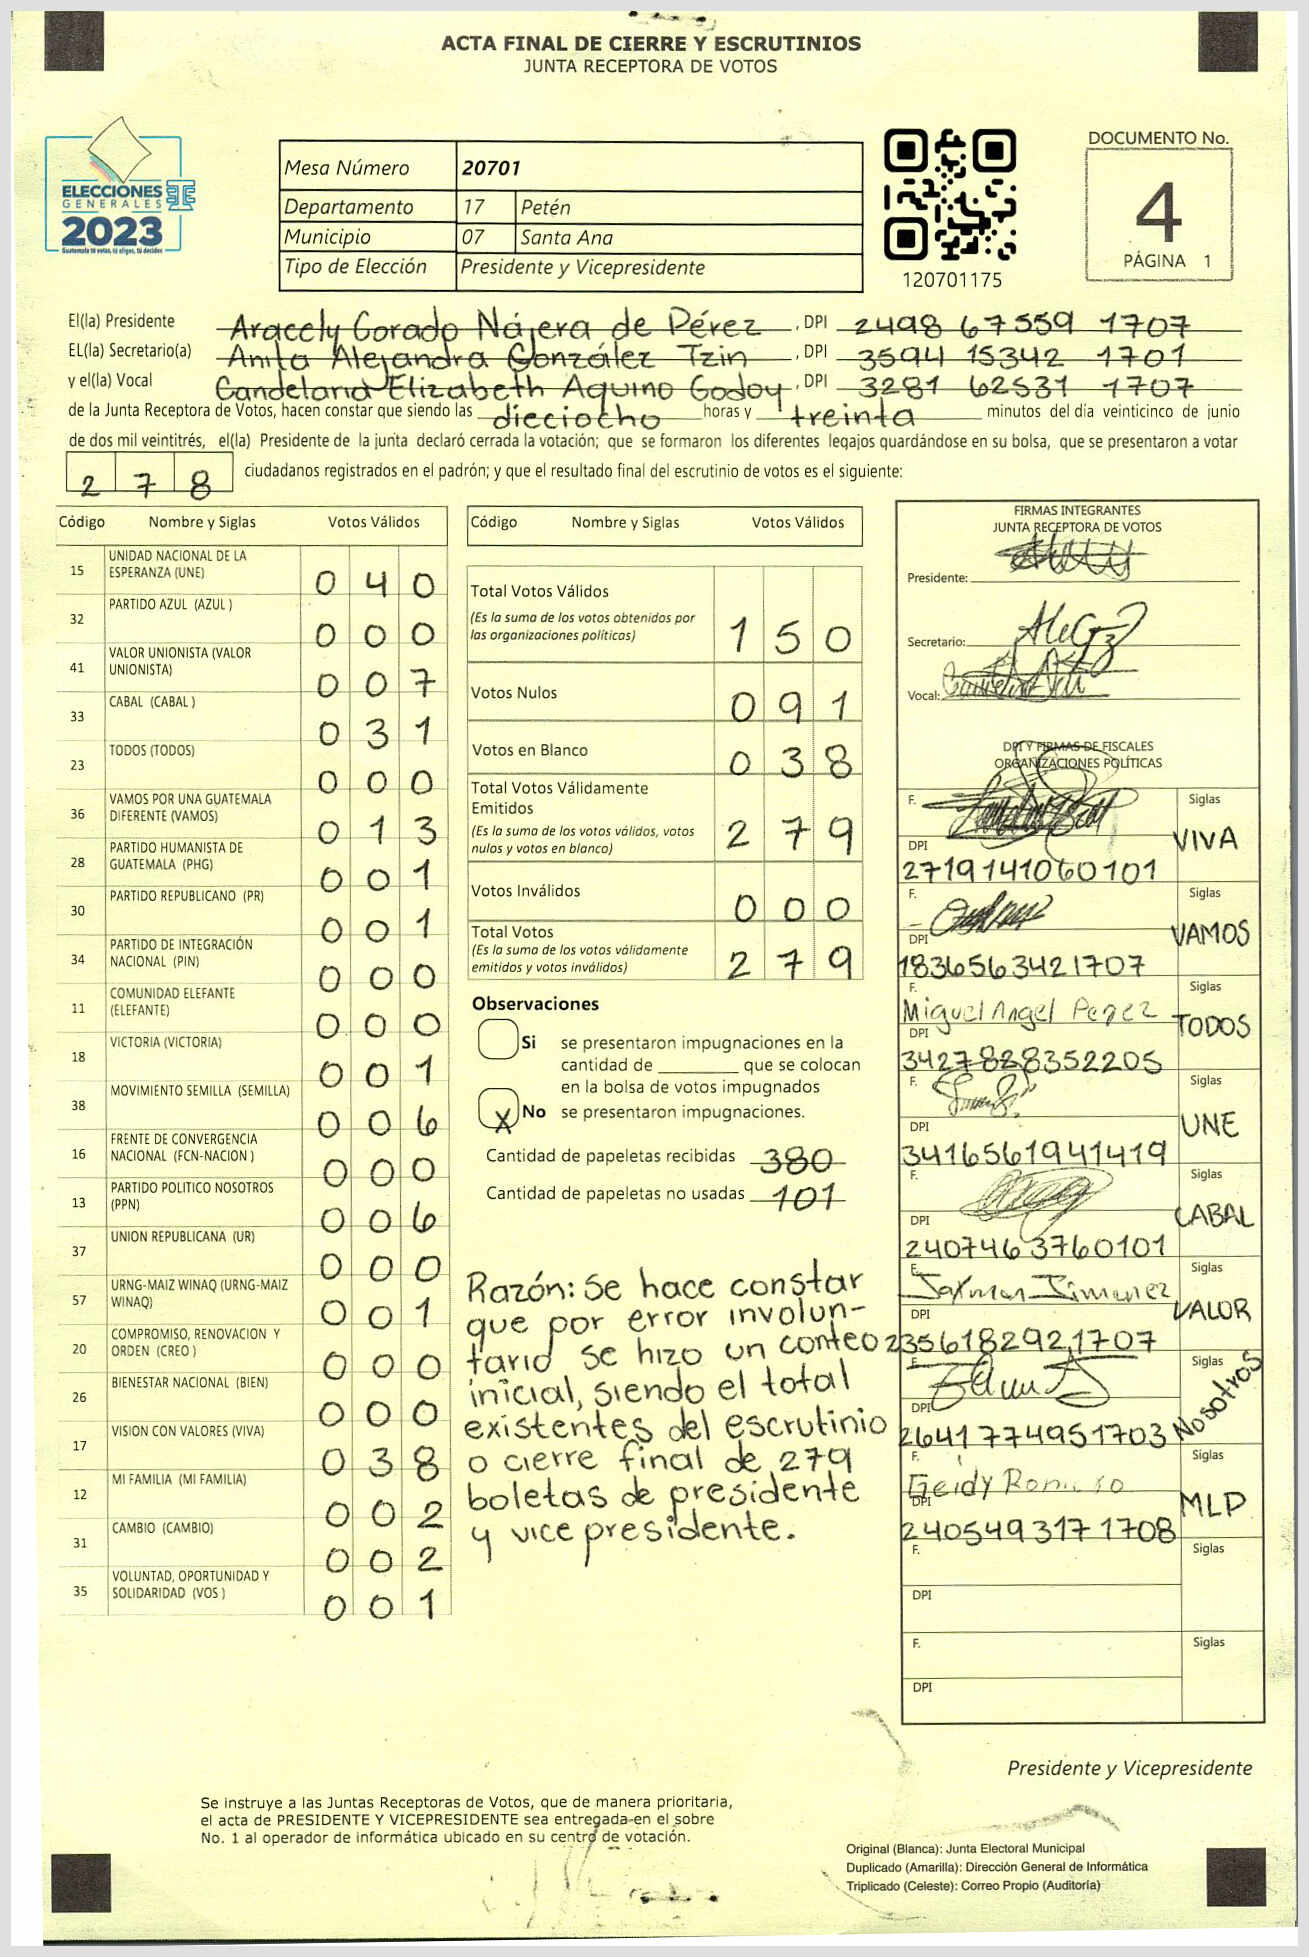 ACTA FINAL DE CIERRE Y ESCRUTINIOS
JUNTA RECEPTORA DE VOTOS
ELECCIONES
GENERALES
2023
Guatemala tú votas, tú eliges, tú decides
Mesa Número 20701
Departamento 17 Petén
Municipio 07 Santa Ana
Tipo de Elección Presidente y Vicepresidente
120701175
DOCUMENTO No.
4
PÁGINA 1
El(la) Presidente Aracely Corado Nájera de Pérez, DPI 2498 67559 1707
EL(la) Secretario(a) Anita Alejandra González Tzin, DPI 3594 15342 1701
y el(la) Vocal Candelaria Elizabeth Aquino Godoy, DPI 3281 62531 1707
de la Junta Receptora de Votos, hacen constar que siendo las dieciocho horas y treinta minutos del día veinticinco de junio
de dos mil veintitrés, el(la) Presidente de la junta declaró cerrada la votación; que se formaron los diferentes legajos quardándose en su bolsa, que se presentaron a votar
278 ciudadanos registrados en el padrón; y que el resultado final del escrutinio de votos es el siguiente:
Código Nombre y Siglas Votos Válidos
15 UNIDAD NACIONAL DE LA ESPERANZA (UNE) 040
32 PARTIDO AZUL (AZUL ) 000
41 VALOR UNIONISTA (VALOR UNIONISTA) 007
33 CABAL (CABAL ) 031
23 TODOS (TODOS) 000
36 VAMOS POR UNA GUATEMALA DIFERENTE (VAMOS) 013
28 PARTIDO HUMANISTA DE GUATEMALA (PHG) 001
30 PARTIDO REPUBLICANO (PR) 001
34 PARTIDO DE INTEGRACIÓN NACIONAL (PIN) 000
11 COMUNIDAD ELEFANTE (ELEFANTE) 000
18 VICTORIA (VICTORIA) 001
38 MOVIMIENTO SEMILLA (SEMILLA) 006
16 FRENTE DE CONVERGENCIA NACIONAL (FCN-NACION ) 000
13 PARTIDO POLITICO NOSOTROS (PPN) 006
37 UNION REPUBLICANA (UR) 000
57 URNG-MAIZ WINAQ (URNG-MAIZ WINAQ) 001
20 COMPROMISO, RENOVACION Y ORDEN (CREO ) 000
26 BIENESTAR NACIONAL (BIEN) 000
17 VISION CON VALORES (VIVA) 038
12 MI FAMILIA (MI FAMILIA) 002
31 CAMBIO (CAMBIO) 002
35 VOLUNTAD, OPORTUNIDAD Y SOLIDARIDAD (VOS ) 001
Código Nombre y Siglas Votos Válidos
Total Votos Válidos 150
(Es la suma de los votos obtenidos por
las organizaciones políticas)
Votos Nulos 091
Votos en Blanco 038
Total Votos Válidamente
Emitidos 279
(Es la suma de los votos válidos, votos
nulos y votos en blanco)
Votos Inválidos 000
Total Votos 279
(Es la suma de los votos válidamente
emitidos y votos inválidos)
Observaciones
Si se presentaron impugnaciones en la
cantidad de ________ que se colocan
en la bolsa de votos impugnados
X No se presentaron impugnaciones.
Cantidad de papeletas recibidas 380
Cantidad de papeletas no usadas 101
Razón: Se hace constar
que por error involun-
tario se hizo un conteo
inicial, siendo el total
existentes del escrutinio
o cierre final de 279
boletas de presidente
y vice presidente.
FIRMAS INTEGRANTES
JUNTA RECEPTORA DE VOTOS
Presidente:
Secretario:
Vocal:
DPI Y FIRMAS DE FISCALES
ORGANIZACIONES POLÍTICAS
F. Siglas
DPI VIVA
2719141060101
F. Siglas
DPI VAMOS
1836563421707
F. Siglas
Miguel Angel Perez
DPI TODOS
3427828352205
F. Siglas
DPI UNE
3416561941419
F. Siglas
DPI CABAL
2407463760101
F. Siglas
Jimenez
DPI VALOR
2356182921707
F. Siglas
DPI Nosotros
2641774951703
F. Siglas
Geidy
DPI MLP
2405493171708
F. Siglas
DPI
F. Siglas
DPI
Presidente y Vicepresidente
Se instruye a las Juntas Receptoras de Votos, que de manera prioritaria,
el acta de PRESIDENTE Y VICEPRESIDENTE sea entregada en el sobre
No. 1 al operador de informática ubicado en su centro de votación.
Original (Blanca): Junta Electoral Municipal
Duplicado (Amarilla): Dirección General de Informática
Triplicado (Celeste): Correo Propio (Auditoría)